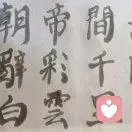 朝辭白
帝彩雲
間千里